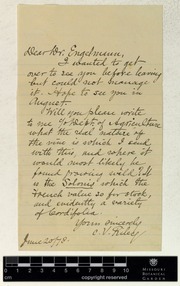 Dear Dr. Engelmann,
I wanted to get
over to see you before leaving
but could not manage
it. Hope to see you in
August.
Will you please write
to me % Dept. of Agriculture
what the real nature of
the vine is which I send
with this, and where it
would most likely be
found growing wild. It
is the Solonis which the
French value so for stock,
and evidently a variety
of Cordifolia.
Yours sincerely
C. V. Riley
June 20/78.
MISSOURI
BOTANICAL
GARDEN